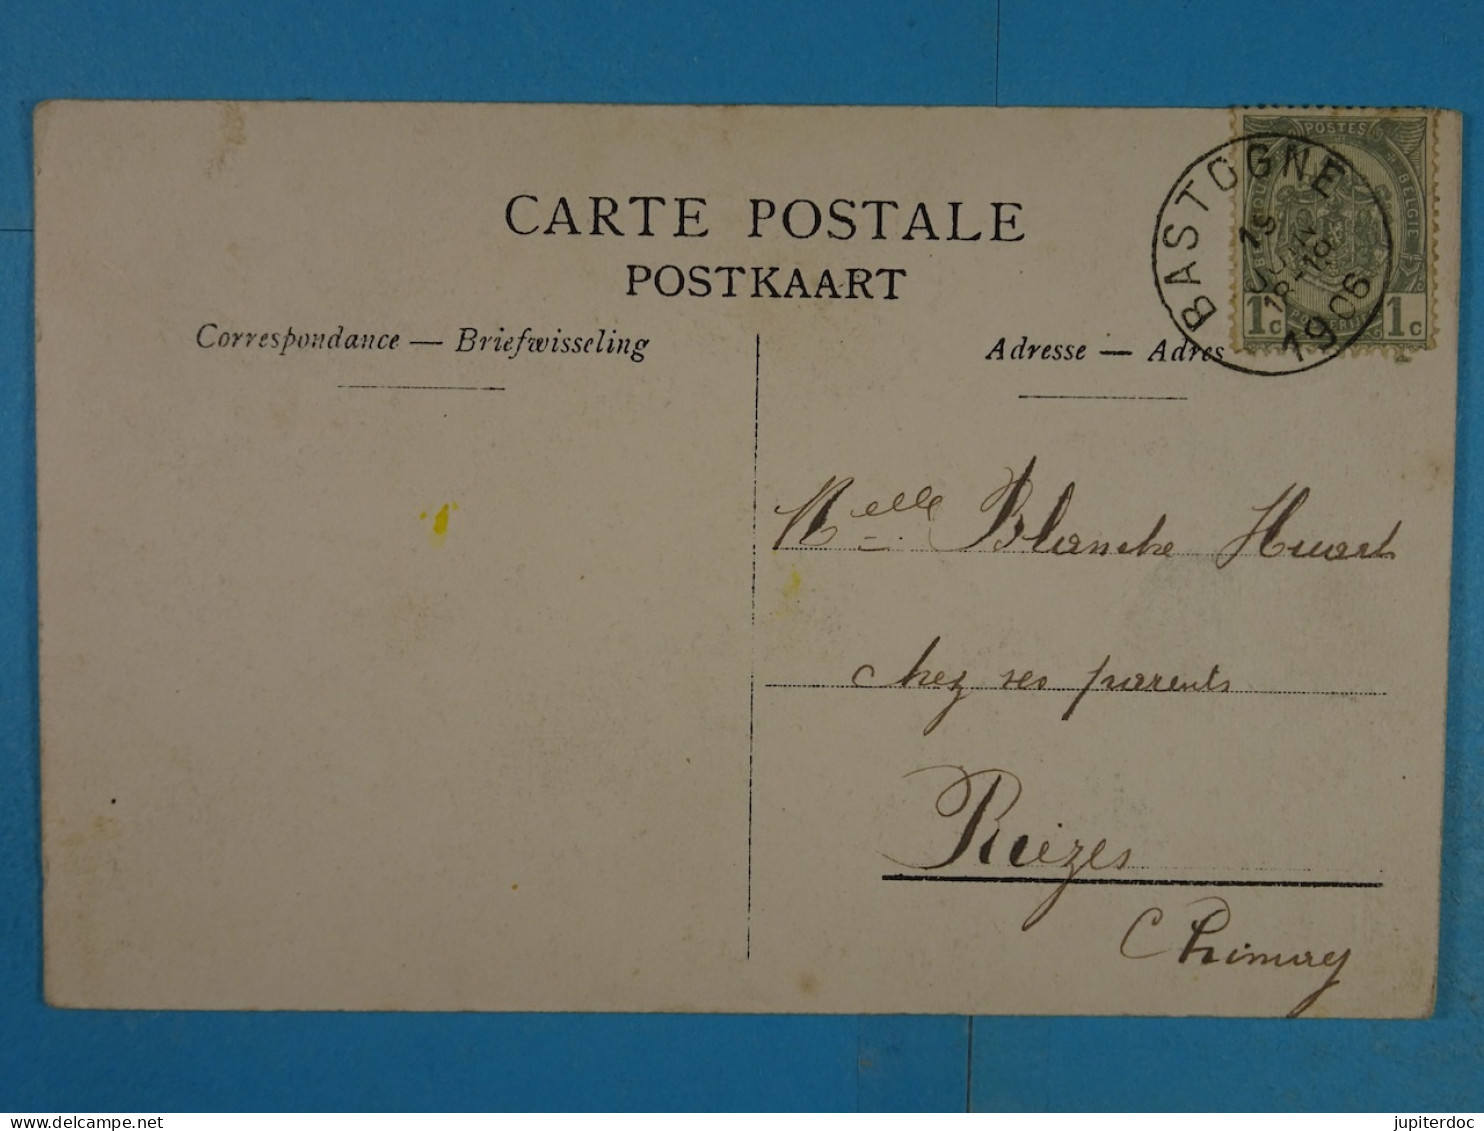 CARTE POSTALE
POSTKAART
Correspondance — Briefwisseling
Adresse — Adres
POSTES
BELGIE
1c 1c
BASTOGNE
JUIN
18-19
1906
Melle Blanche Huart
chez ses parents
Rièzes
Chimay
delcampe.net
jupiterdoc